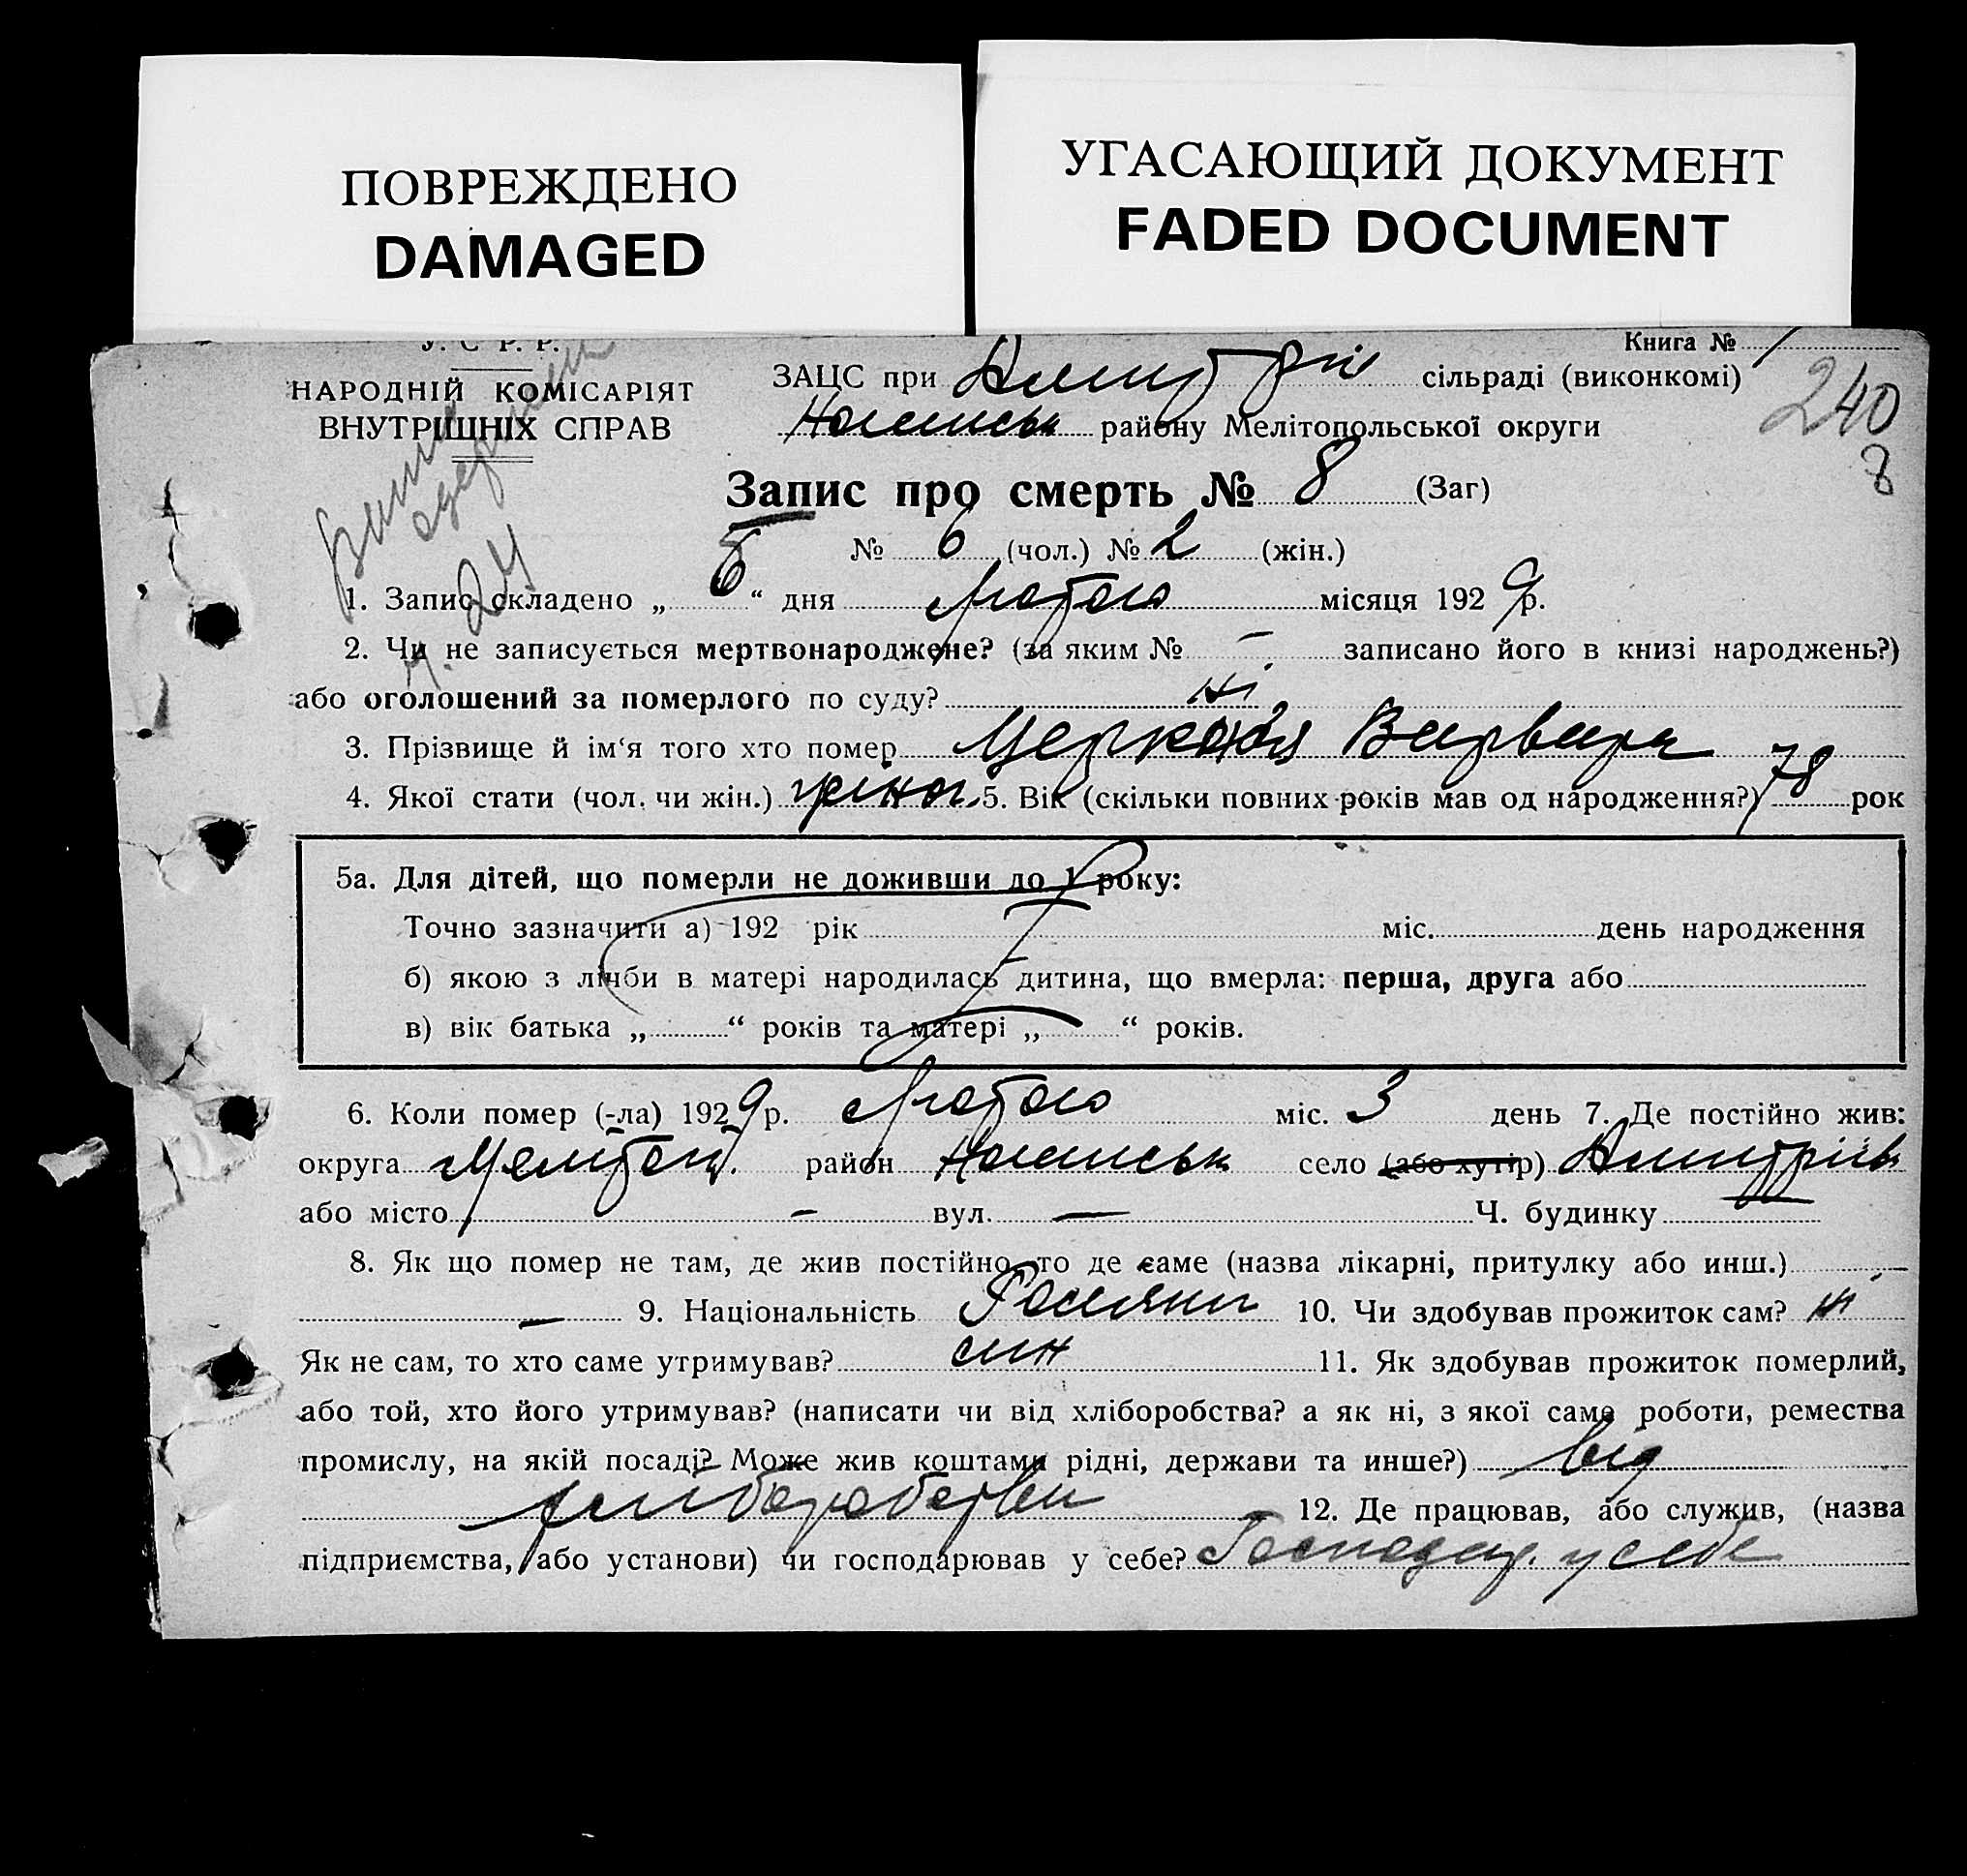 ПОВРЕЖДЕНО
DAMAGED
УГАСАЮЩИЙ ДОКУМЕНТ
FADED DOCUMENT
У. С. Р. Р.
НАРОДНІЙ КОМІСАРІЯТ
ВНУТРІШНІХ СПРАВ
Книга № 1
240
8
ЗАЦС при сільраді (виконкомі)
району Мелітопольської округи
Запис про смерть № 8 (Заг)
№ 6 (чол.) № 2 (жін.)
24
1. Запис складено „ “ дня Лютого місяця 1929 р.
2. Чи не записується мертвонароджене? (за яким № – записано його в книзі народжень?)
або оголошений за померлого по суду? ні
3. Прізвище й ім‘я того хто помер Варвара
4. Якої стати (чол. чи жін.) жіноч. 5. Вік (скільки повних років мав од народження?) 78 рок
5а. Для дітей, що померли не доживши до 1 року:
Точно зазначити а) 192 рік міс. день народження
б) якою з лічби в матері народилась дитина, що вмерла: перша, друга або
в) вік батька „ “ років та матері „ “ років.
6. Коли помер (-ла) 1929 р. Лютого міс. 3 день 7. Де постійно жив:
округа район село (або хутір)
або місто – вул. – Ч. будинку –
8. Як що помер не там, де жив постійно, то де саме (назва лікарні, притулку або инш.) –
– 9. Національність 10. Чи здобував прожиток сам? ні
Як не сам, то хто саме утримував? син 11. Як здобував прожиток померлий,
або той, хто його утримував? (написати чи від хліборобства? а як ні, з якої саме роботи, ремества
промислу, на якій посаді? Може жив коштами рідні, держави та инше?) від
хліборобства 12. Де працював, або служив, (назва
підприємства, або установи) чи господарював у себе? Господар. у себе